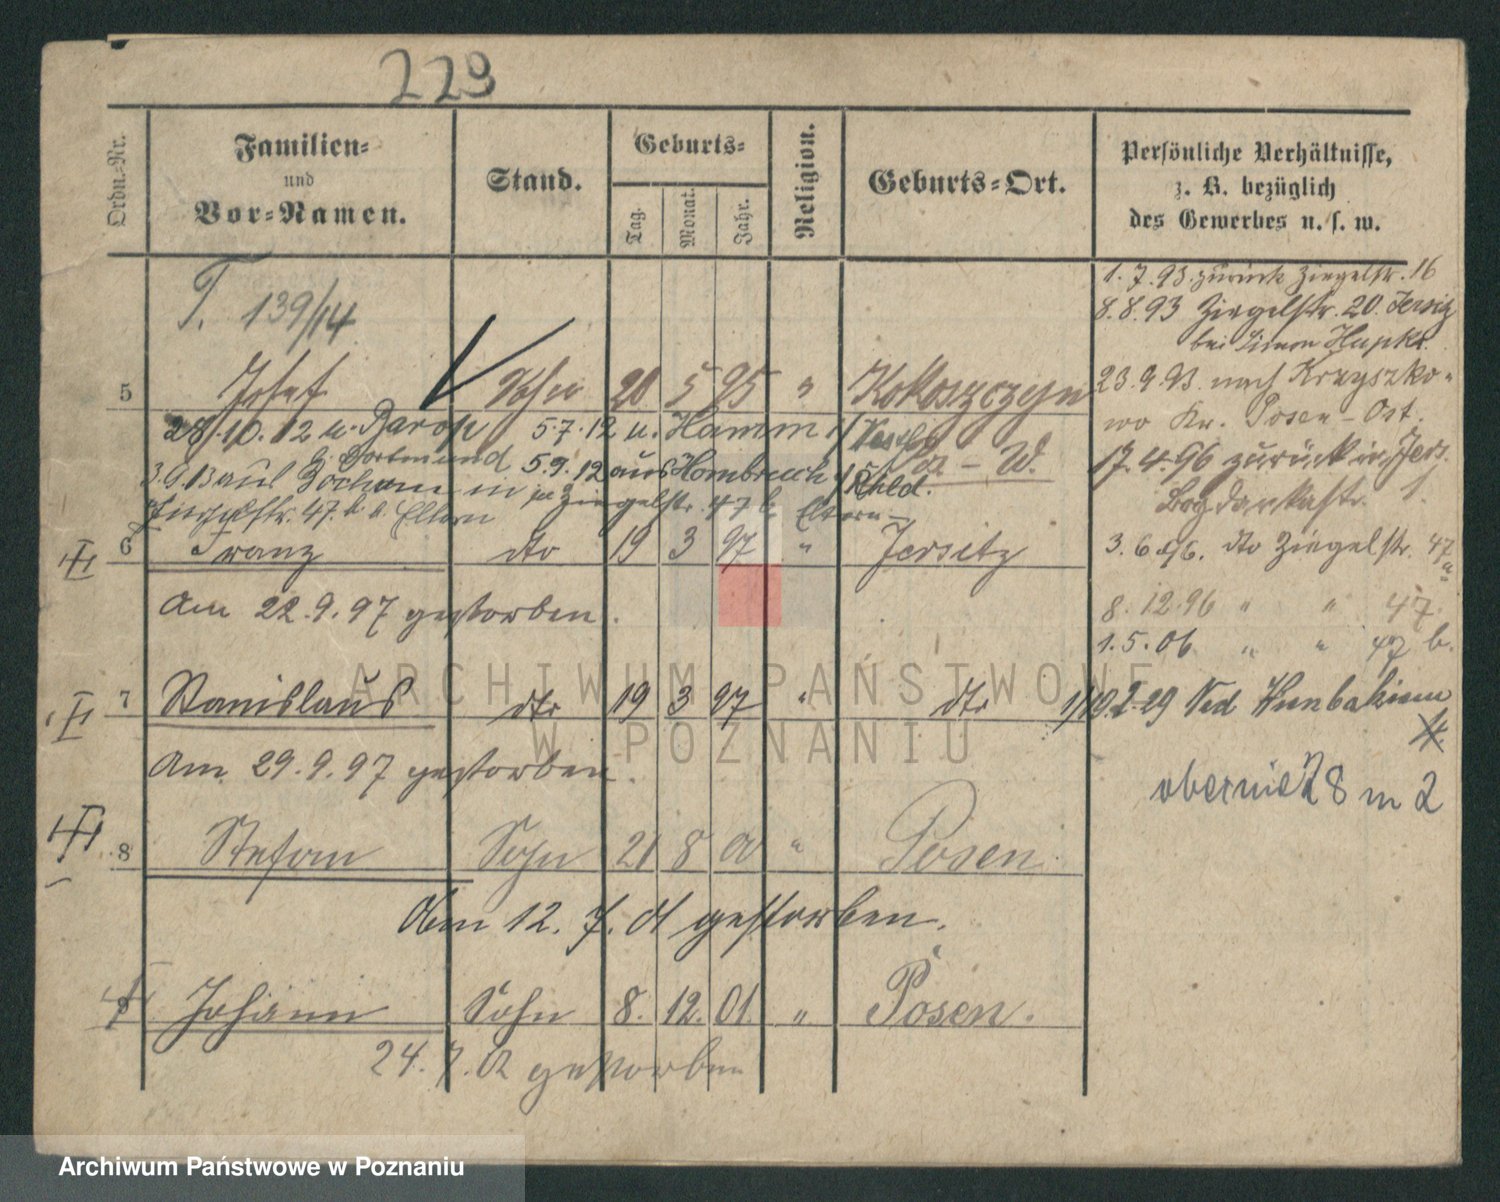 223
Ordn.-Nr.
Familien-
und
Vor-Namen.
Stand.
Geburts-
Tag.
Monat.
Jahr.
Religion.
Geburts-Ort.
Persönliche Verhältnisse,
z. B. bezüglich
des Gewerbes u. s. w.
T. 139/14
1.7.93. zurück Ziegelstr. 16
8.8.93 Ziegelstr. 20. Jersitz
bei Simon Hapke
5 Josef Sohn 20 5 95 " Kokoszczyn
23.9.93. nach Krzyszko-
wo Kr. Posen-Ost.
28.10.12 n. Barop 5.7.12 n. Hamm
Dortmund 5.9.12 aus Hombruch
Pos-W.
17.4.96 zurück in Jers.
3.9.13 aus Bochum in Ziegelstr. 47 b Eltern
Bogdankastr. 1.
Ziegelstr. 47. b. b. Eltern
6 Franz dto 19 3 97 " Jersitz
3.6.96. dto Ziegelstr. 47 a
Am 22.9.97 gestorben.
8.12.96 " " 47.
1.5.06 " " 47 b.
7 Stanislaus dto 19 3 97 " dto
Am 29.9.97 gestorben.
8 Stefan Sohn 21 8 00 " Posen
Am 12.7.01 gestorben.
9 Johann Sohn 8. 12. 01. " Posen.
24.7.02 gestorben
ARCHIWUM PAŃSTWOWE
W POZNANIU
Archiwum Państwowe w Poznaniu